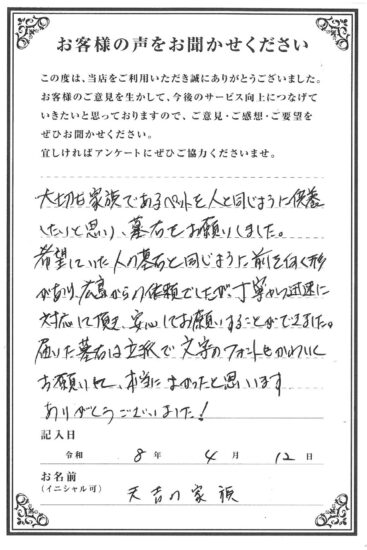 お客様の声をお聞かせください
この度は、当店をご利用いただき誠にありがとうございました。
お客様のご意見を生かして、今後のサービス向上につなげて
いきたいと思っておりますので、ご意見・ご感想・ご要望を
ぜひお聞かせください。
宜しければアンケートにぜひご協力くださいませ。
大切な家族であるペットを人と同じように供養
したいと思い、墓石をお願いしました。
希望していた人の墓石と同じように前を向く形
があり、広島からの依頼でしたが、丁寧かつ迅速に
対応して頂き、安心してお願いすることができました。
届いた墓石は立派で文字のフォントもかわいく
お願いして、本当によかったと思います
ありがとうございました!
記入日
令和 8 年 4 月 12 日
お名前
(イニシャル可) 天吉の家族